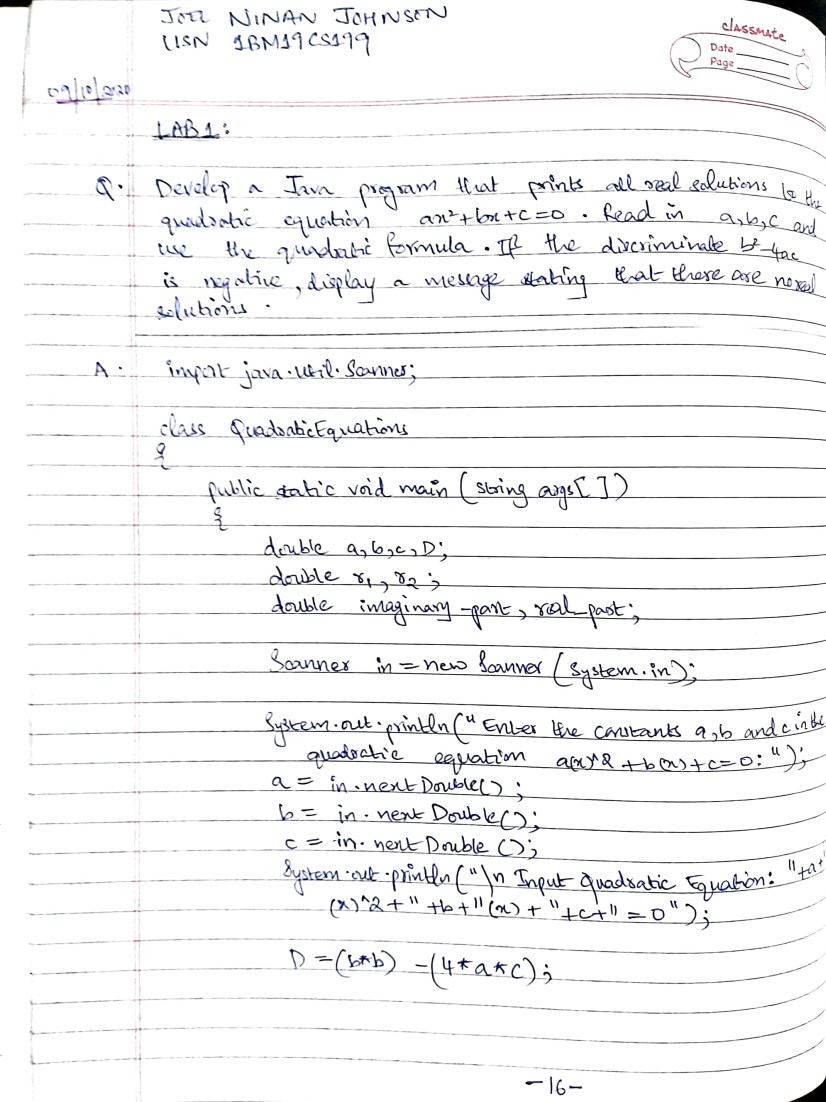 JOEL NINAN JOHNSON
USN 1BM19CS199
classmate
Date
Page
09/10/2020
LAB 1:
Q. Develop a Java program that prints all real solutions to the
quadratic equation ax²+bx+c=0. Read in a,b,c and
use the quadratic formula. If the discriminate b²-4ac
is negative, display a message stating that there are no real
solutions.
A. import java.util.Scanner;
class QuadraticEquations
{
public static void main (String args[])
{
double a,b,c,D;
double r1, r2;
double imaginary-part, real-part;
Scanner in = new Scanner (System.in);
System.out.println(" Enter the constants a,b and c in the
quadratic equation a(x)^2 + b(x)+c=0: ");
a = in.nextDouble();
b = in.nextDouble();
c = in.nextDouble ();
System.out.println("\n Input Quadratic Equation: "+a+"
(x)^2+" +b+"(x)+"+c+" = 0");
D = (b*b) - (4*a*c);
-16-